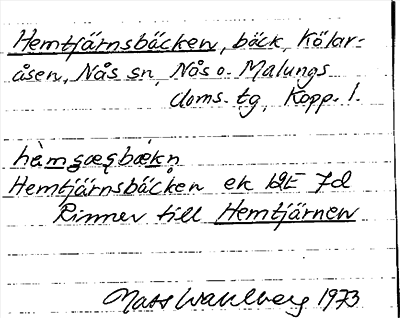 Hemtjärnsbäcken, bäck, Kölar-
åsen, Nås sn, Nås o. Malungs
doms. tg, Kopp. l.
Hemtjärnsbäcken ek 12E 7d
Rinner till Hemtjärnen
Mats Wahlberg 1973